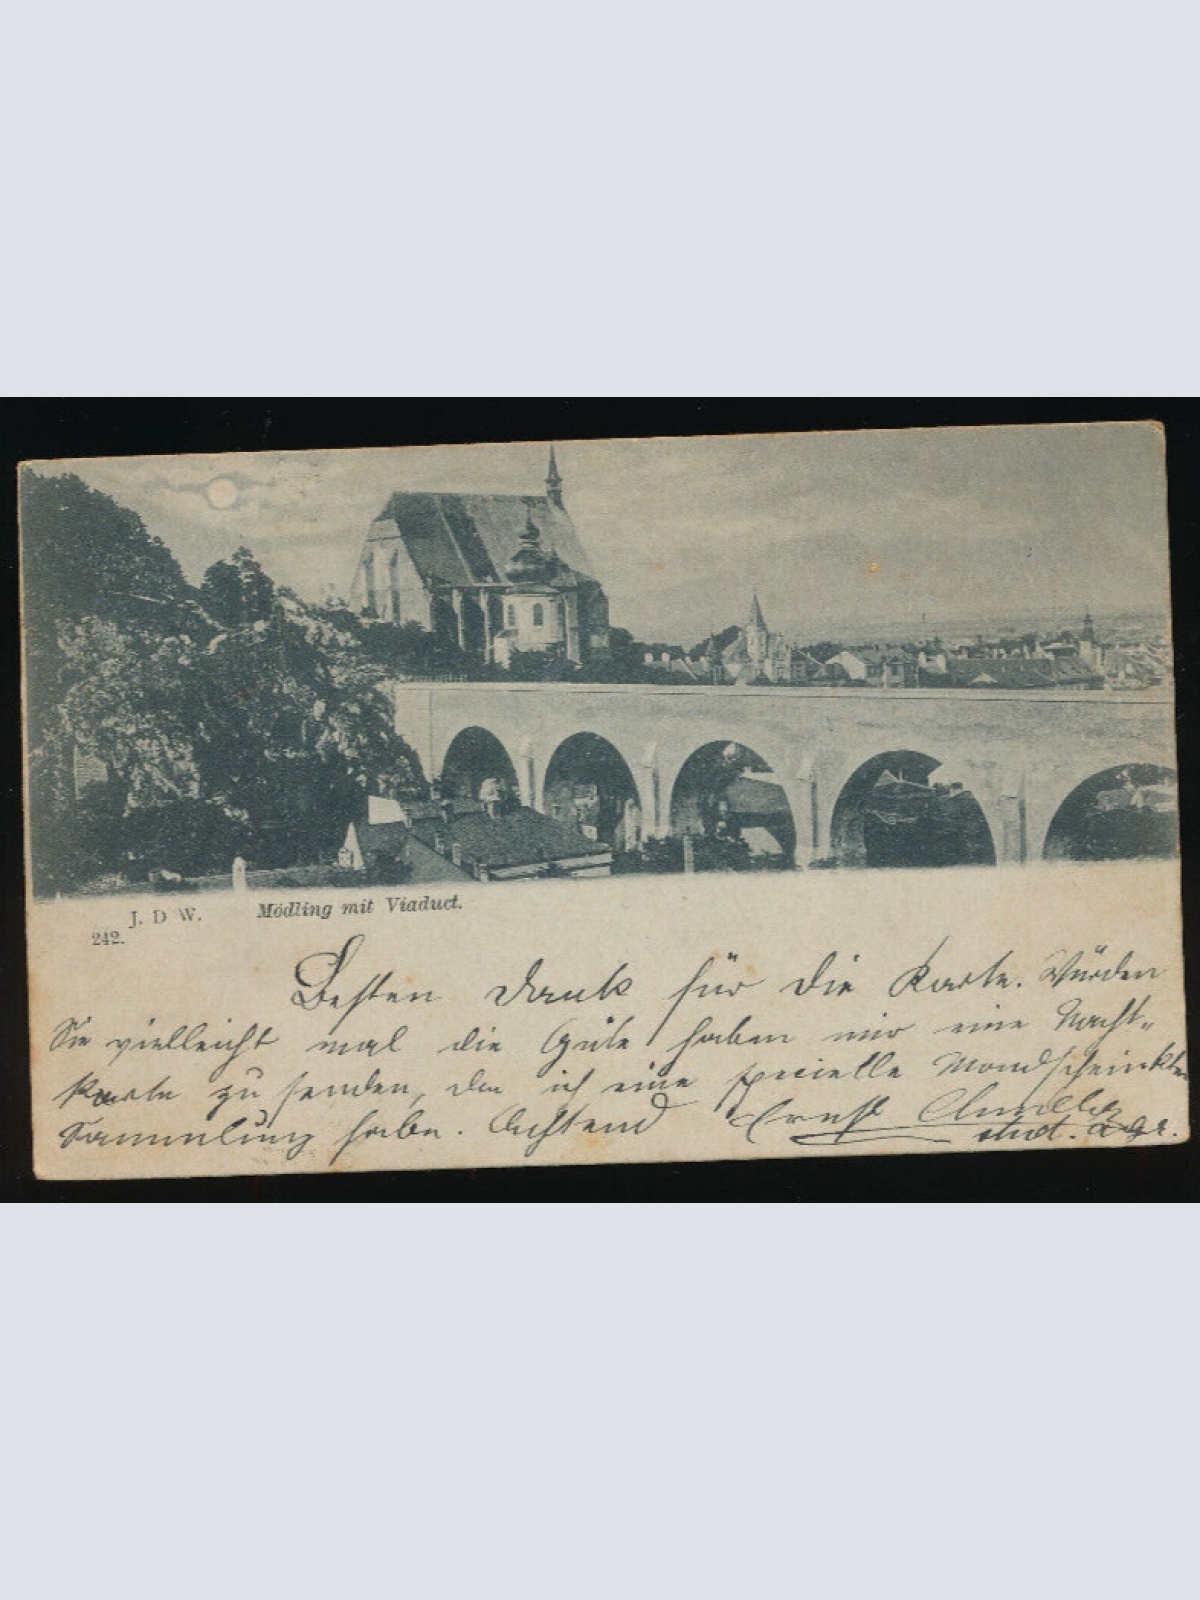 J. D W. Mödling mit Viaduct.
242.
Besten Dank für die Karte. Würden
Sie vielleicht mal die Güte haben mir eine Nacht-
karte zu senden, da ich eine specielle Mondscheinkten
Sammlung habe. Achtend Ernst
stud. agr.